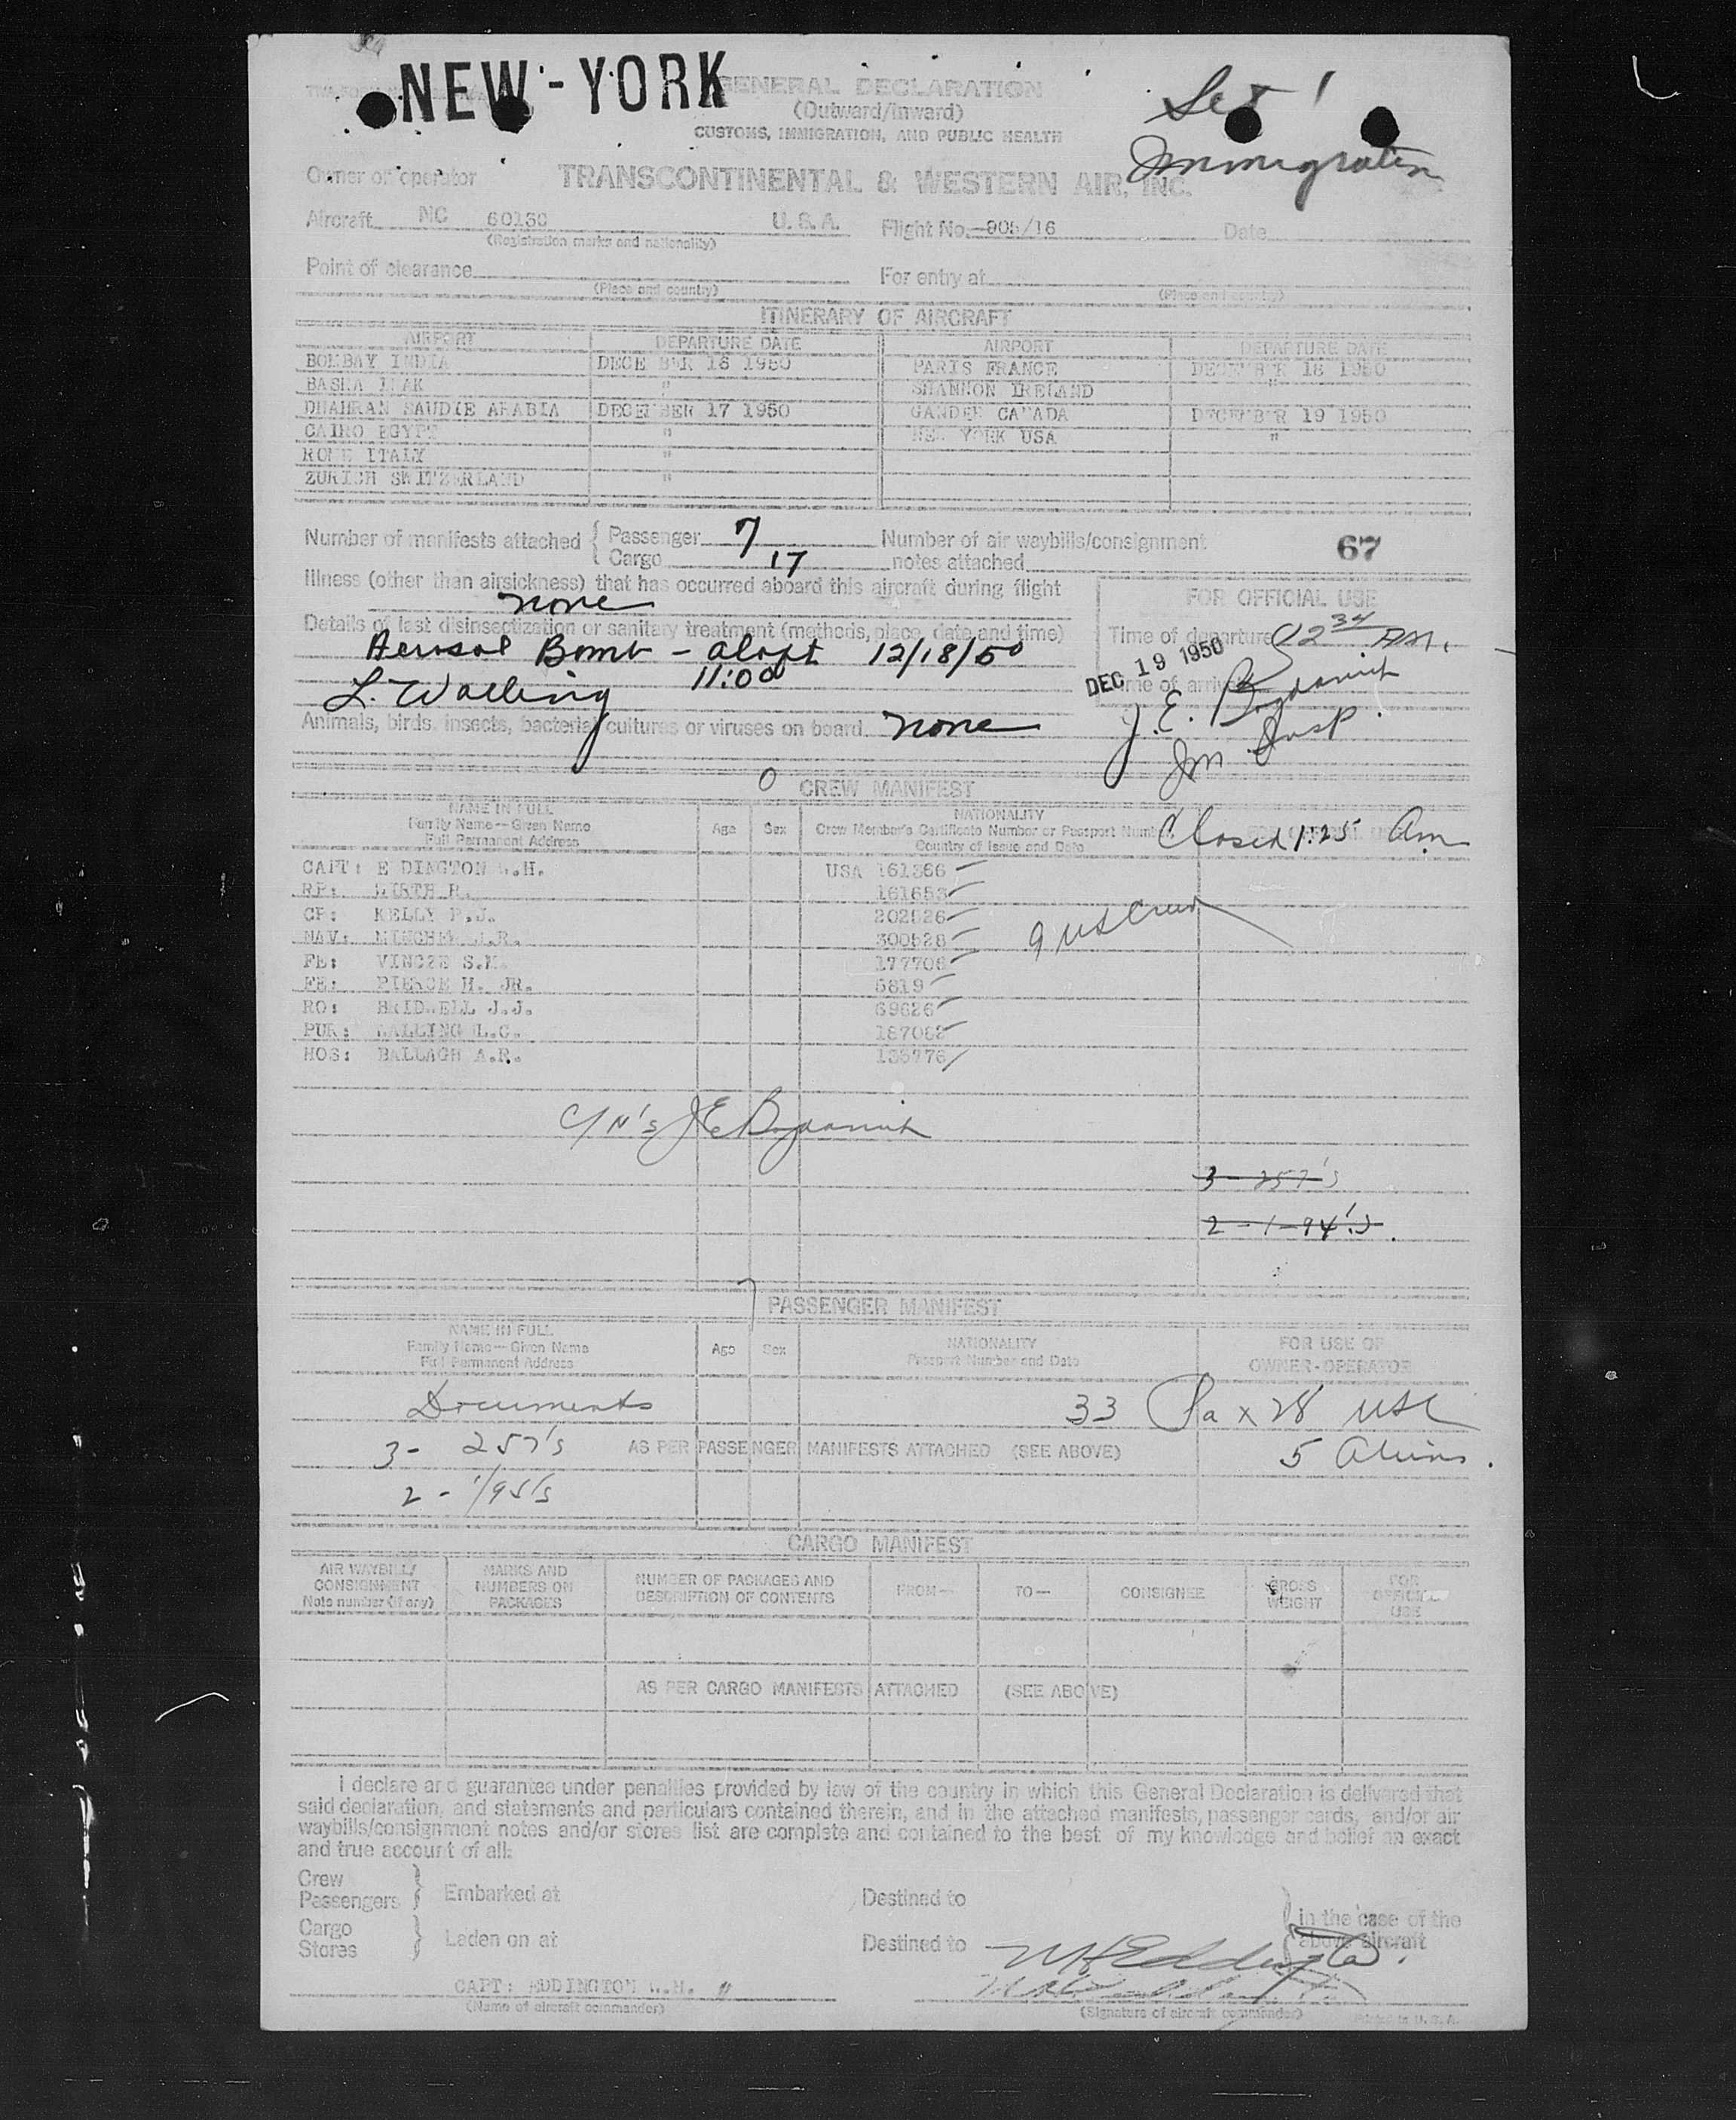 NEW-YORK
GENERAL DECLARATION
(Outward/Inward)
CUSTOMS, IMMIGRATION, AND PUBLIC HEALTH
Immigration
Owner or operator TRANSCONTINENTAL & WESTERN AIR, INC.
Aircraft NC 60130 U. S. A. Flight No. 905/16 Date
(Registration marks and nationality)
Point of clearance For entry at
(Place and country) (Place and country)
ITINERARY OF AIRCRAFT
AIRPORT DEPARTURE DATE AIRPORT DEPARTURE DATE
BOMBAY INDIA DECE BER 16 1950 PARIS FRANCE DECEMBER 18 1950
BASRA IRAK " SHANNON IRELAND "
DHAHRAN SAUDIE ARABIA DECEMBER 17 1950 GANDER CANADA DECEMBER 19 1950
CAIRO EGYPT " NEW YORK USA "
ROME ITALY "
ZURICH SWITZERLAND "
Number of manifests attached { Passenger 7 Number of air waybills/consignment
Cargo 17 notes attached 67
Illness (other than airsickness) that has occurred aboard this aircraft during flight
none
FOR OFFICIAL USE
Details of last disinsectization or sanitary treatment (methods, place, date and time)
Time of departure 12 34 AM.
Aerosol Bomb - aloft 12/18/50
11:00
DEC 19 1950
Time of arrival
L. Walling
J. E. Bogdanich
Im Insp.
Animals, birds, insects, bacterial cultures or viruses on board none
0
CREW MANIFEST
NAME IN FULL
Family Name—Given Name
Full Permanent Address
Age Sex
NATIONALITY
Crew Member's Certificate Number or Passport Number
Country of Issue and Date
Closed 1:25 Am
CAPT: E DINGTON W.H. USA 161386
RP: WIRTH R. 161653
CP: KELLY P.J. 202526
NAV: MINCHEW J.R. 300528
9 USC Crew
FE: VINCZE S.M. 177706
FE: PIERCE H. JR. 5819
RO: BRIDWELL J.J. 69626
PUR: WALLING L.C. 187062
HOS: BALLAGH A.R. 136776
C/N's JE Bogdanich
3 - 257's
2 - 1-94's.
7
PASSENGER MANIFEST
NAME IN FULL
Family Name—Given Name
Full Permanent Address
Age Sex
NATIONALITY
Passport Number and Date
FOR USE OF
OWNER-OPERATOR
Documents 33 Pax 28 USC
3 - 257's AS PER PASSENGER MANIFESTS ATTACHED (SEE ABOVE) 5 Aliens.
2 - I/95's
CARGO MANIFEST
AIR WAYBILL/
CONSIGNMENT
Note number (if any)
MARKS AND
NUMBERS ON
PACKAGES
NUMBER OF PACKAGES AND
DESCRIPTION OF CONTENTS
FROM— TO— CONSIGNEE
GROSS
WEIGHT
FOR
OFFICIAL
USE
AS PER CARGO MANIFESTS ATTACHED (SEE ABOVE)
I declare and guarantee under penalties provided by law of the country in which this General Declaration is delivered that
said declaration, and statements and particulars contained therein, and in the attached manifests, passenger cards, and/or air
waybills/consignment notes and/or stores list are complete and contained to the best of my knowledge and belief an exact
and true account of all:
Crew
Passengers } Embarked at Destined to
Cargo
Stores } Laden on at Destined to
in the case of the
above aircraft
WH Eddington.
CAPT: EDDINGTON W.H.
(Name of aircraft commander) (Signature of aircraft commander) Printed in U. S. A.